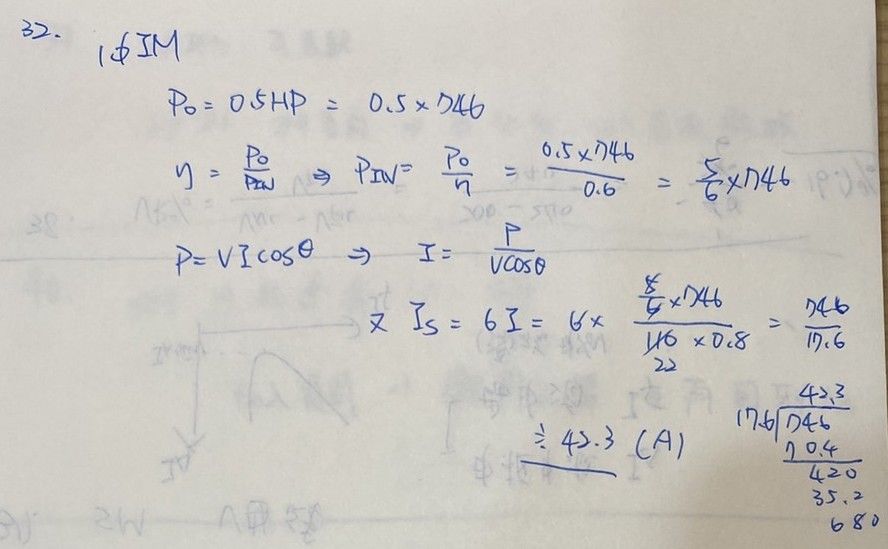 32.
1ϕIM
Po = 0.5HP = 0.5 × 746
η = Po/PIN ⇒ PIN = Po/η = 0.5×746/0.6 = 5/6 × 746
P = VI cosθ ⇒ I = P/Vcosθ
又 Is = 6I = 6 × (5/6 × 746)/(110 × 0.8) = 746/17.6
22
≒ 42.3 (A)
42.3
17.6 746
70.4
420
35.2
680